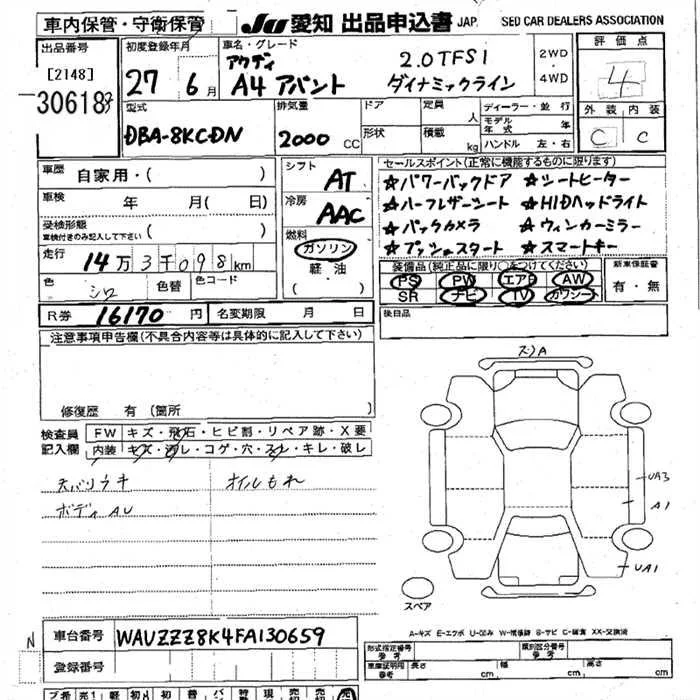 車内保管・守衛保管
JU 愛知 出品申込書 JAP. SED CAR DEALERS ASSOCIATION
出品番号
[2148]
30618
初度登録年月
27 6月
車名・グレード
アウディ 2.0TFSI
A4 アバント ダイナミックライン
2WD
4WD
評価点
4
外装 内装
C C
型式
DBA-8KCDN
排気量
2000 CC
ドア
形状
定員 人
積載 kg
ディーラー・並行
モデル年式 年
ハンドル 左・右
車歴 自家用・( )
車検 年 月( 日)
受検形態 ( )
車検付きのみ記入して下さい
走行 14万3千098km
色 シロ 色替 色コード
R券 16170円 名変期限 月 日
シフト AT
冷房 AAC
燃料
ガソリン
軽・油
( )
セールスポイント(正常に機能するものに限ります)
☆パワーバックドア ☆シートヒーター
☆ハーフレザーシート ☆HIDヘッドライト
☆バックカメラ ☆ウィンカーミラー
☆プッシュスタート ☆スマートキー
装備品(純正品に限り○をつけてください)
PS PW エアB AW
SR ナビ TV カワシート
新車保証書
有・無
後日品
注意事項申告欄(不具合内容等は具体的に記入して下さい)
修復歴 有(箇所
検査員記入欄
FW キズ・飛石・ヒビ割・リペア跡・X要
内装 キズ・汚レ・コゲ・穴・スレ・キレ・破レ
天バリウキ オイルもれ
ボディAU
ズリA
UA3
A1
UA1
スペア
A-キズ E-エクボ U-凹み W-補修跡 S-サビ C-腐蝕 XX-交換済
N
車台番号 WAUZZZ8K4FA130659
登録番号
形式指定番号 類別区分番号
参考 参考
車庫証明用参考 長さ cm 幅 cm 高さ cm